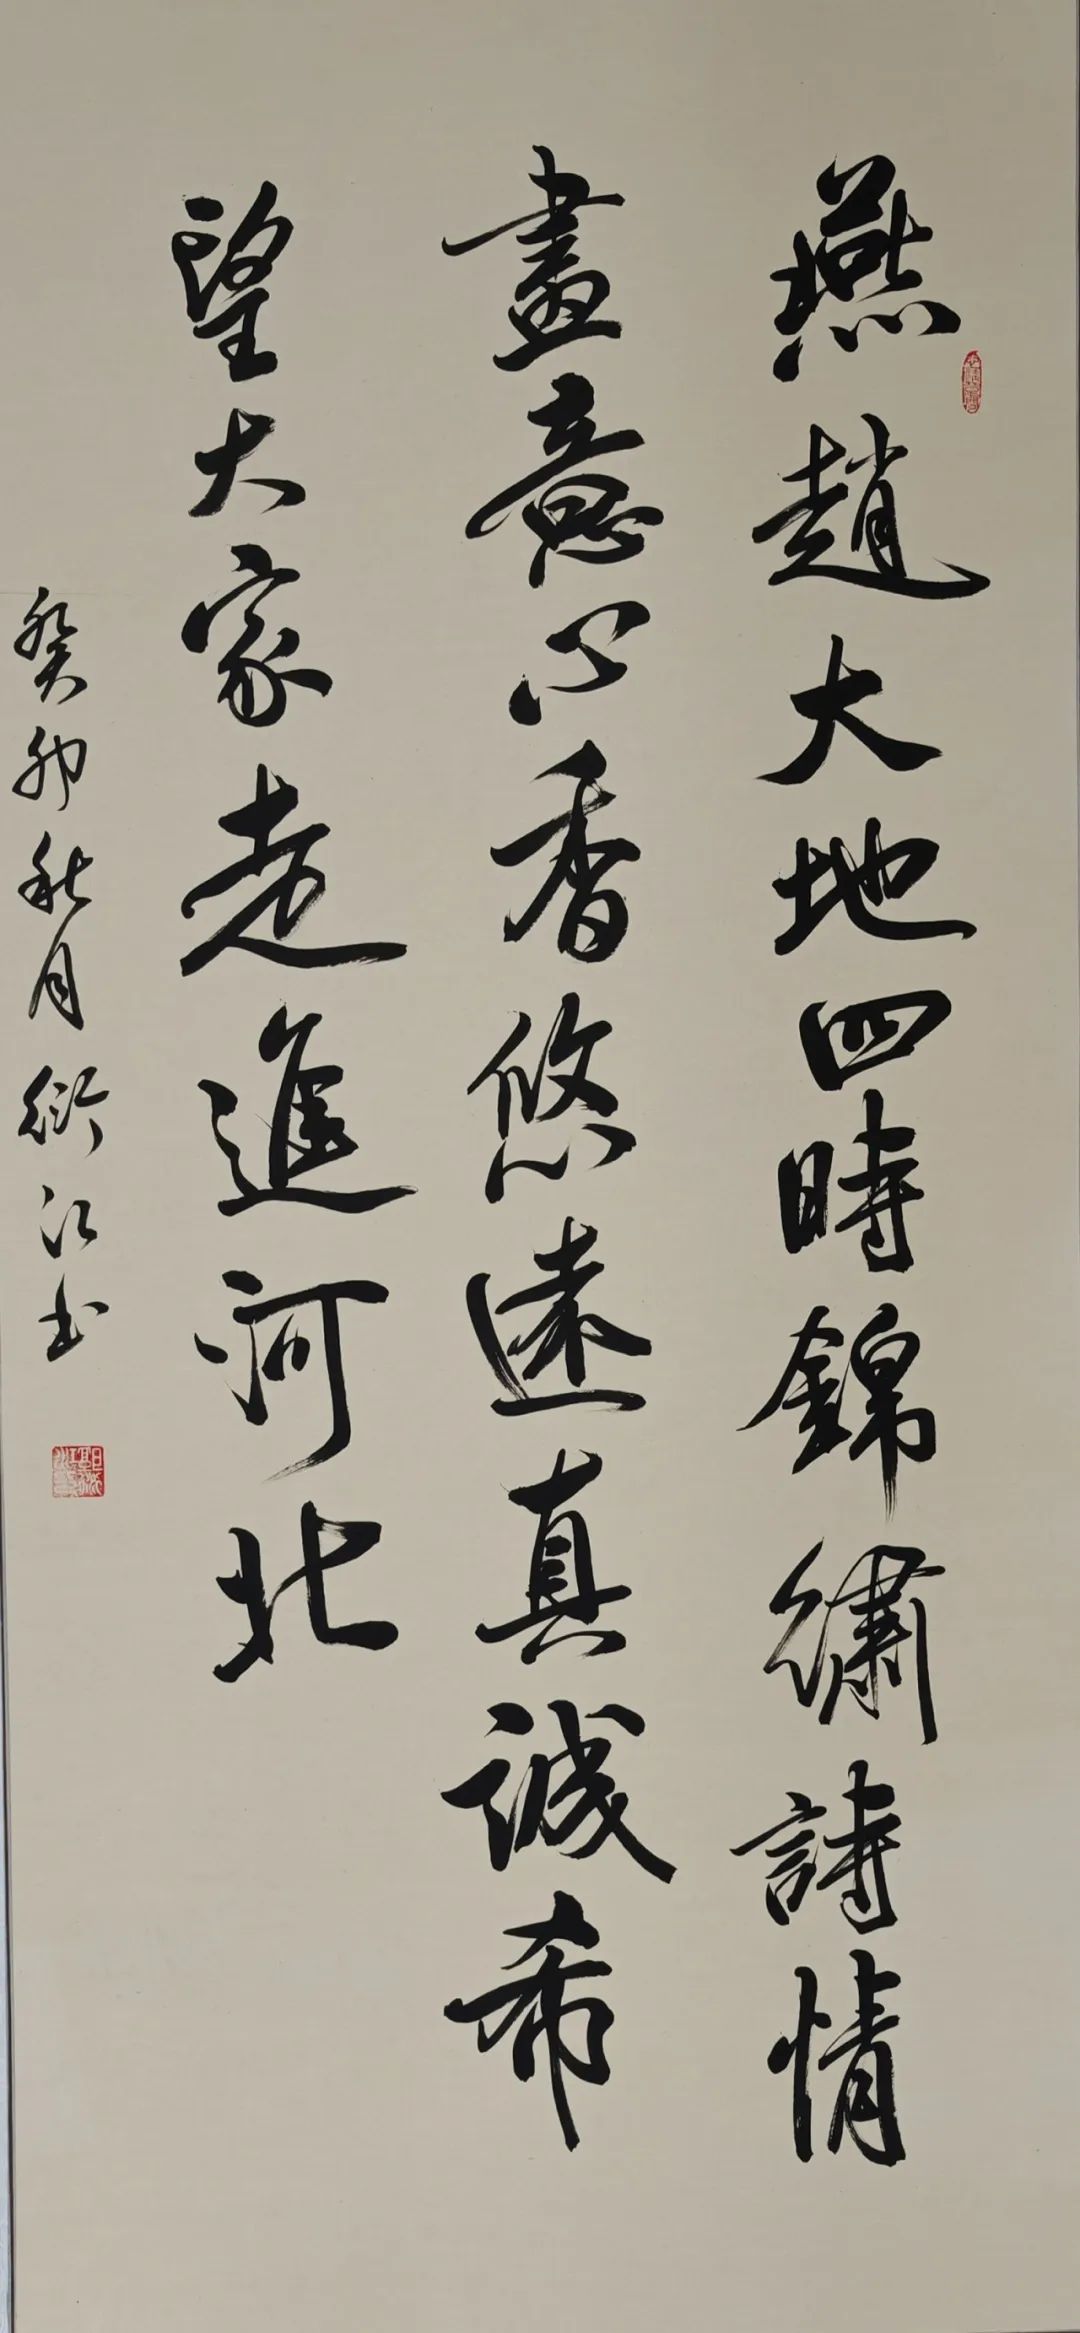 燕趙大地四時錦繡詩情
畫意心香悠遠真誠希
望大家走進河北
癸卯秋月衍江书